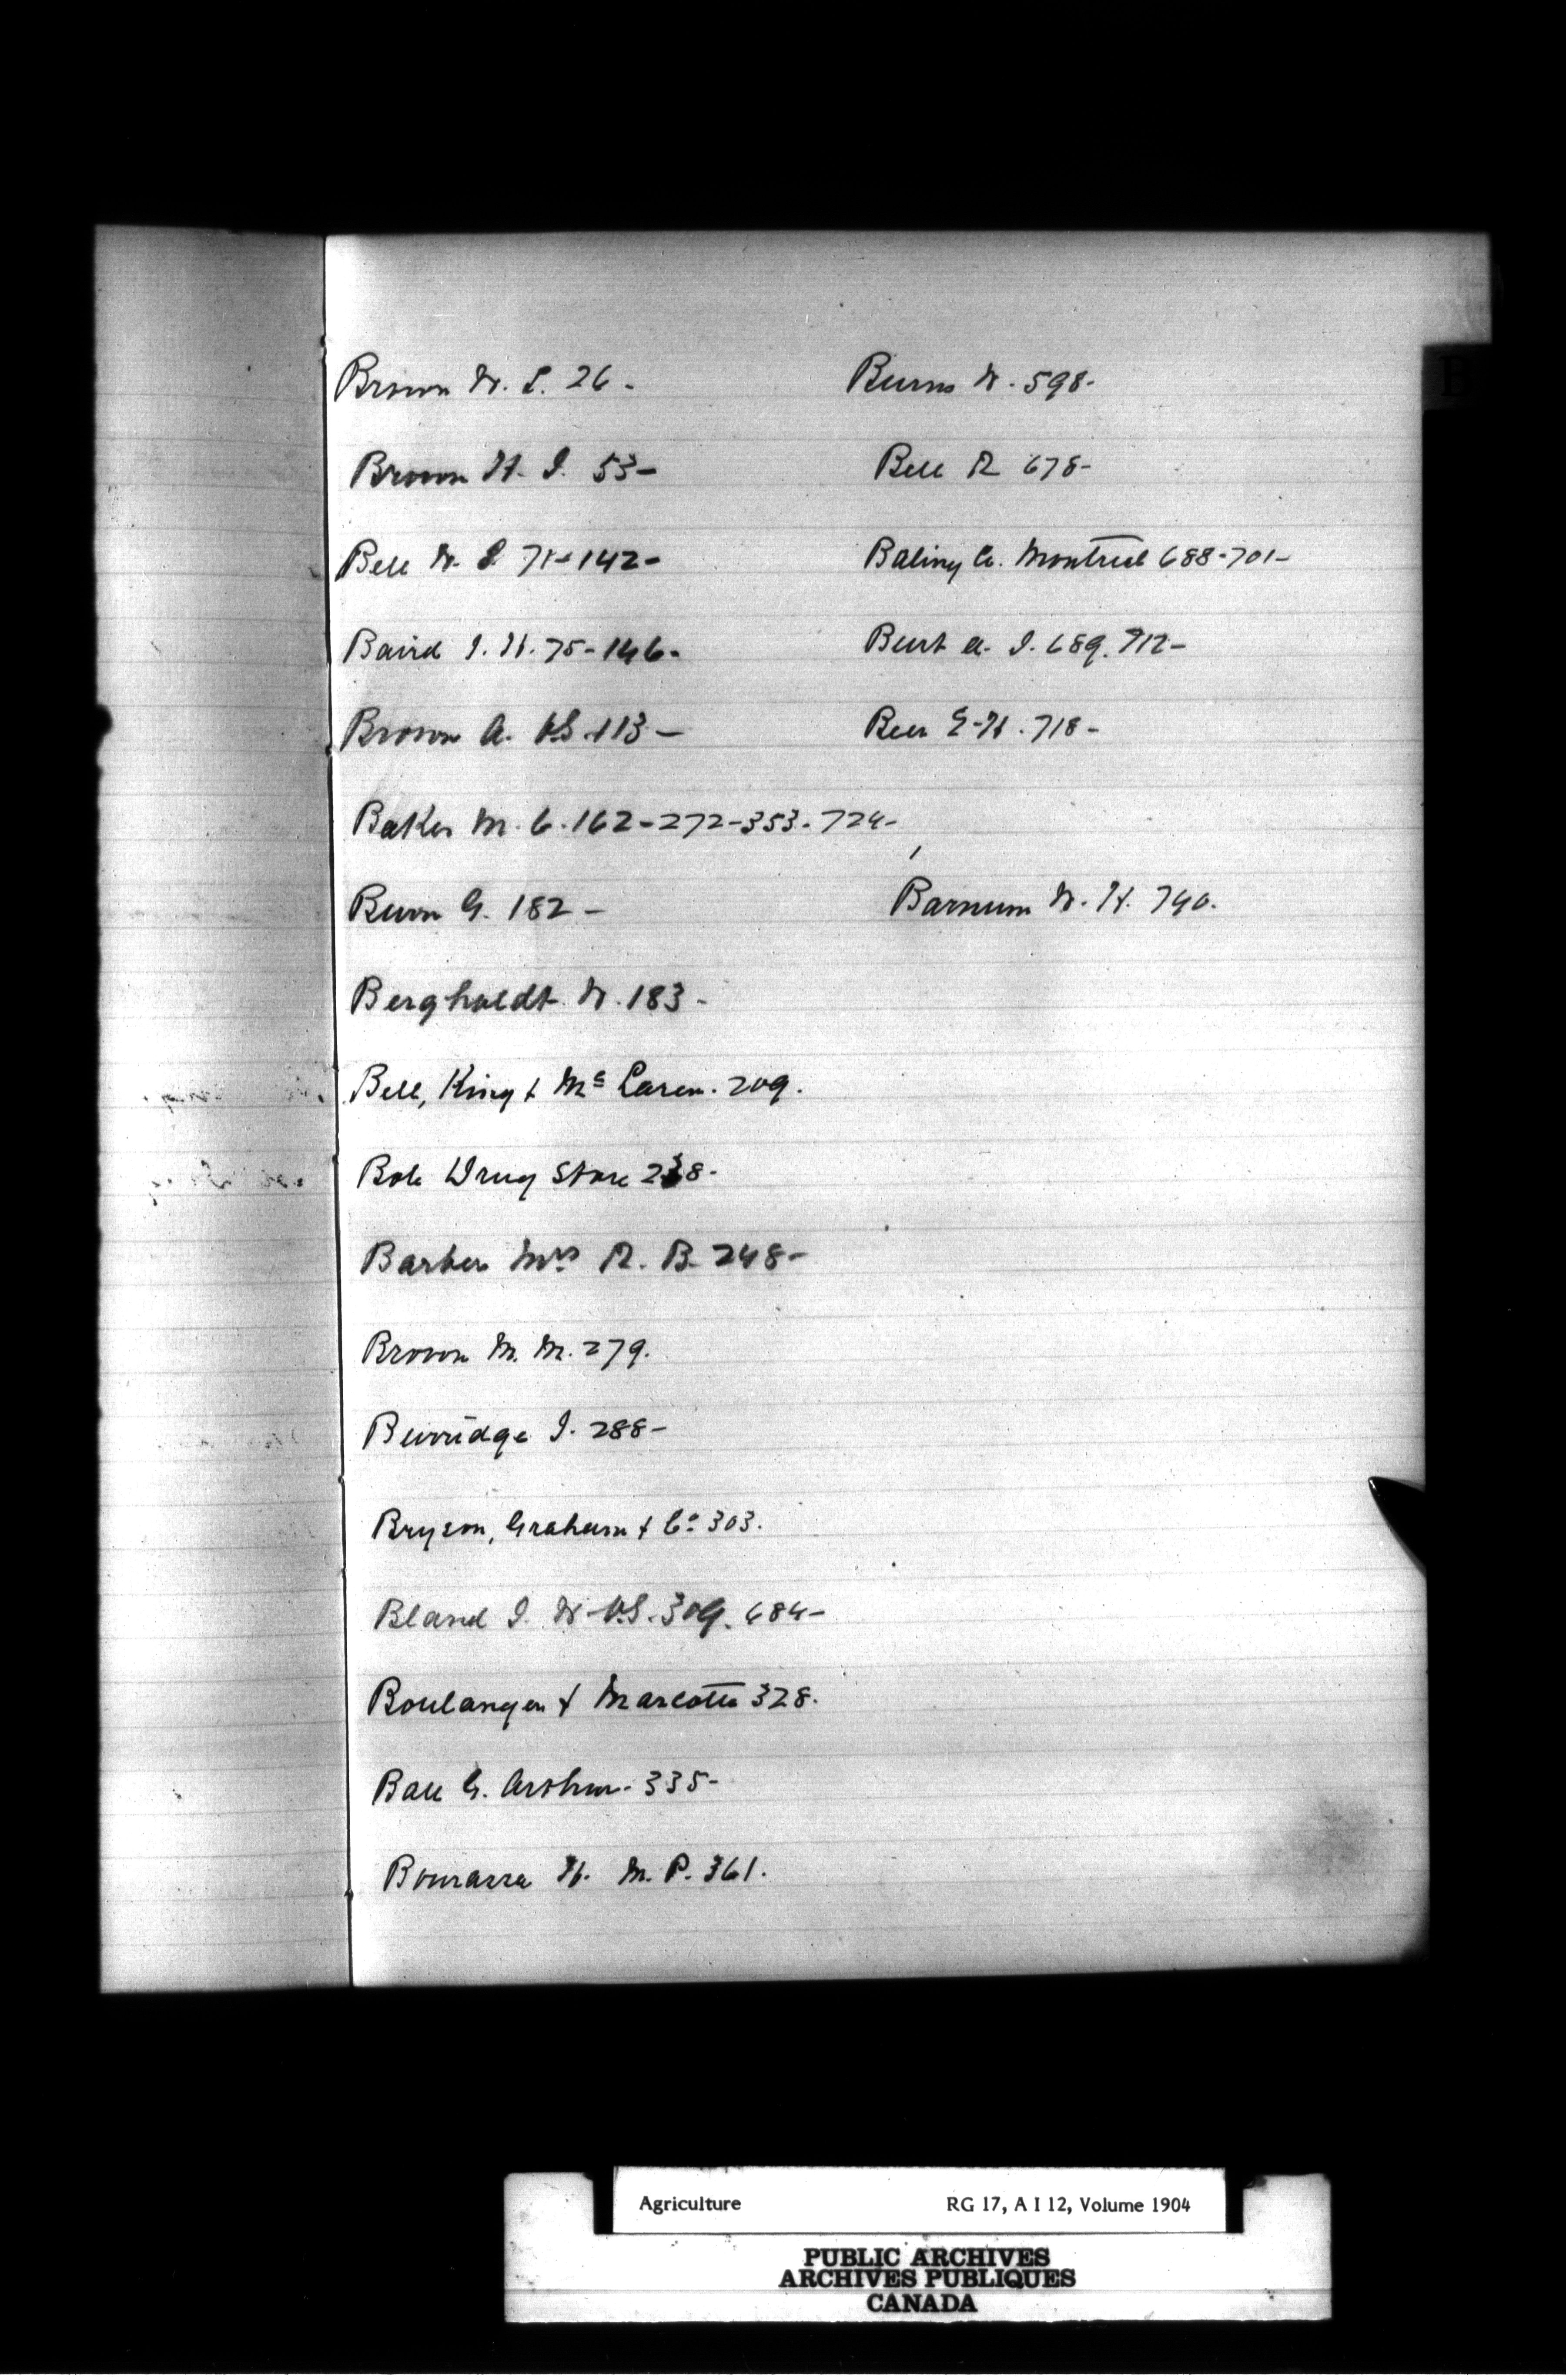 B
Brown W. L. 26 -
Brown H. J. 53 -
Bell W. L. 71 - 142 -
Baird J. H. 75 - 146 -
Brown A. V.S. 113 -
Baker M. C. 162 - 272 - 353 - 724 -
Burn G. 182 -
Bergholdt W. 183 -
Bell, King & Mc Laren. 209.
Bole Drug Store 238 -
Barber Mrs R. B. 248 -
Brown M. M. 279.
Burridge J. 288 -
Bryson, Graham & Co 303.
Bland J. W. V.S. 309. 684 -
Boulanger & Marcotte 328.
Ball G. Arthur - 335 -
Bourassa H. M. P. 361.
Burns W. 598 -
Bell R 678 -
Baling Co. Montreal 688 - 701 -
Burt A. J. 689. 712 -
Beer E. H. 718 -
Barnum W. H. 740.
Agriculture RG 17, A I 12, Volume 1904
PUBLIC ARCHIVES
ARCHIVES PUBLIQUES
CANADA